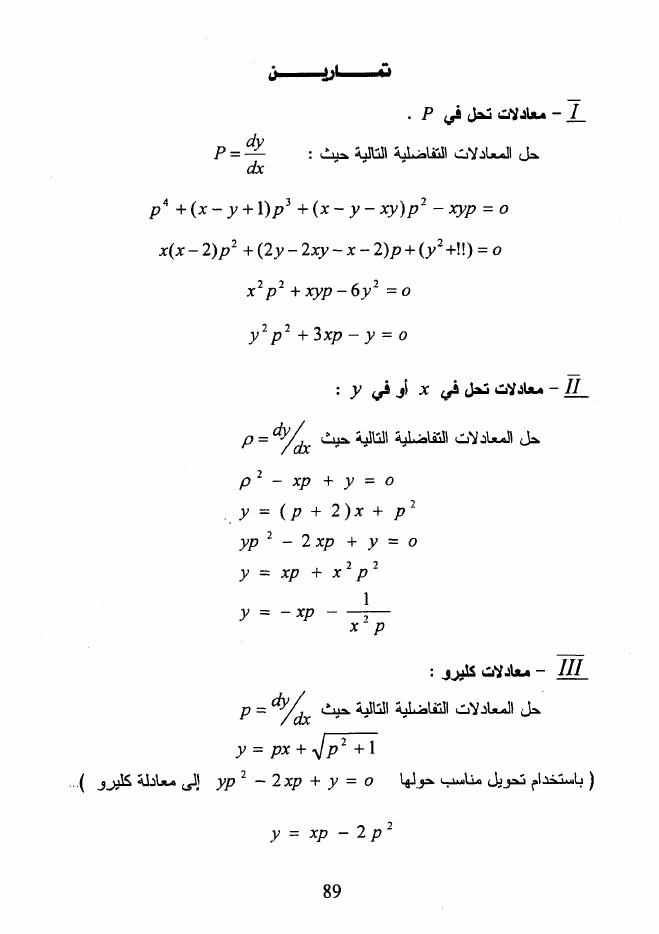 تمـــاريـــن
I – معادلات تحل في P .
حل المعادلات التفاضلية التالية حيث : P = dy/dx
p⁴ + (x – y + 1)p³ + (x – y – xy)p² – xyp = o
x(x – 2)p² + (2y – 2xy – x – 2)p + (y² +!!) = o
x²p² + xyp – 6y² = o
y²p² + 3xp – y = o
II – معادلات تحل في x أو في y :
حل المعادلات التفاضلية التالية حيث ρ = dy/dx
ρ² – xp + y = o
y = (p + 2)x + p²
yp² – 2xp + y = o
y = xp + x²p²
y = – xp – 1/x²p
III – معادلات كليرو :
حل المعادلات التفاضلية التالية حيث p = dy/dx
y = px + √(p² + 1)
( باستخدام تحويل مناسب حولها yp² – 2xp + y = o إلى معادلة كليرو )...
y = xp – 2p²
89